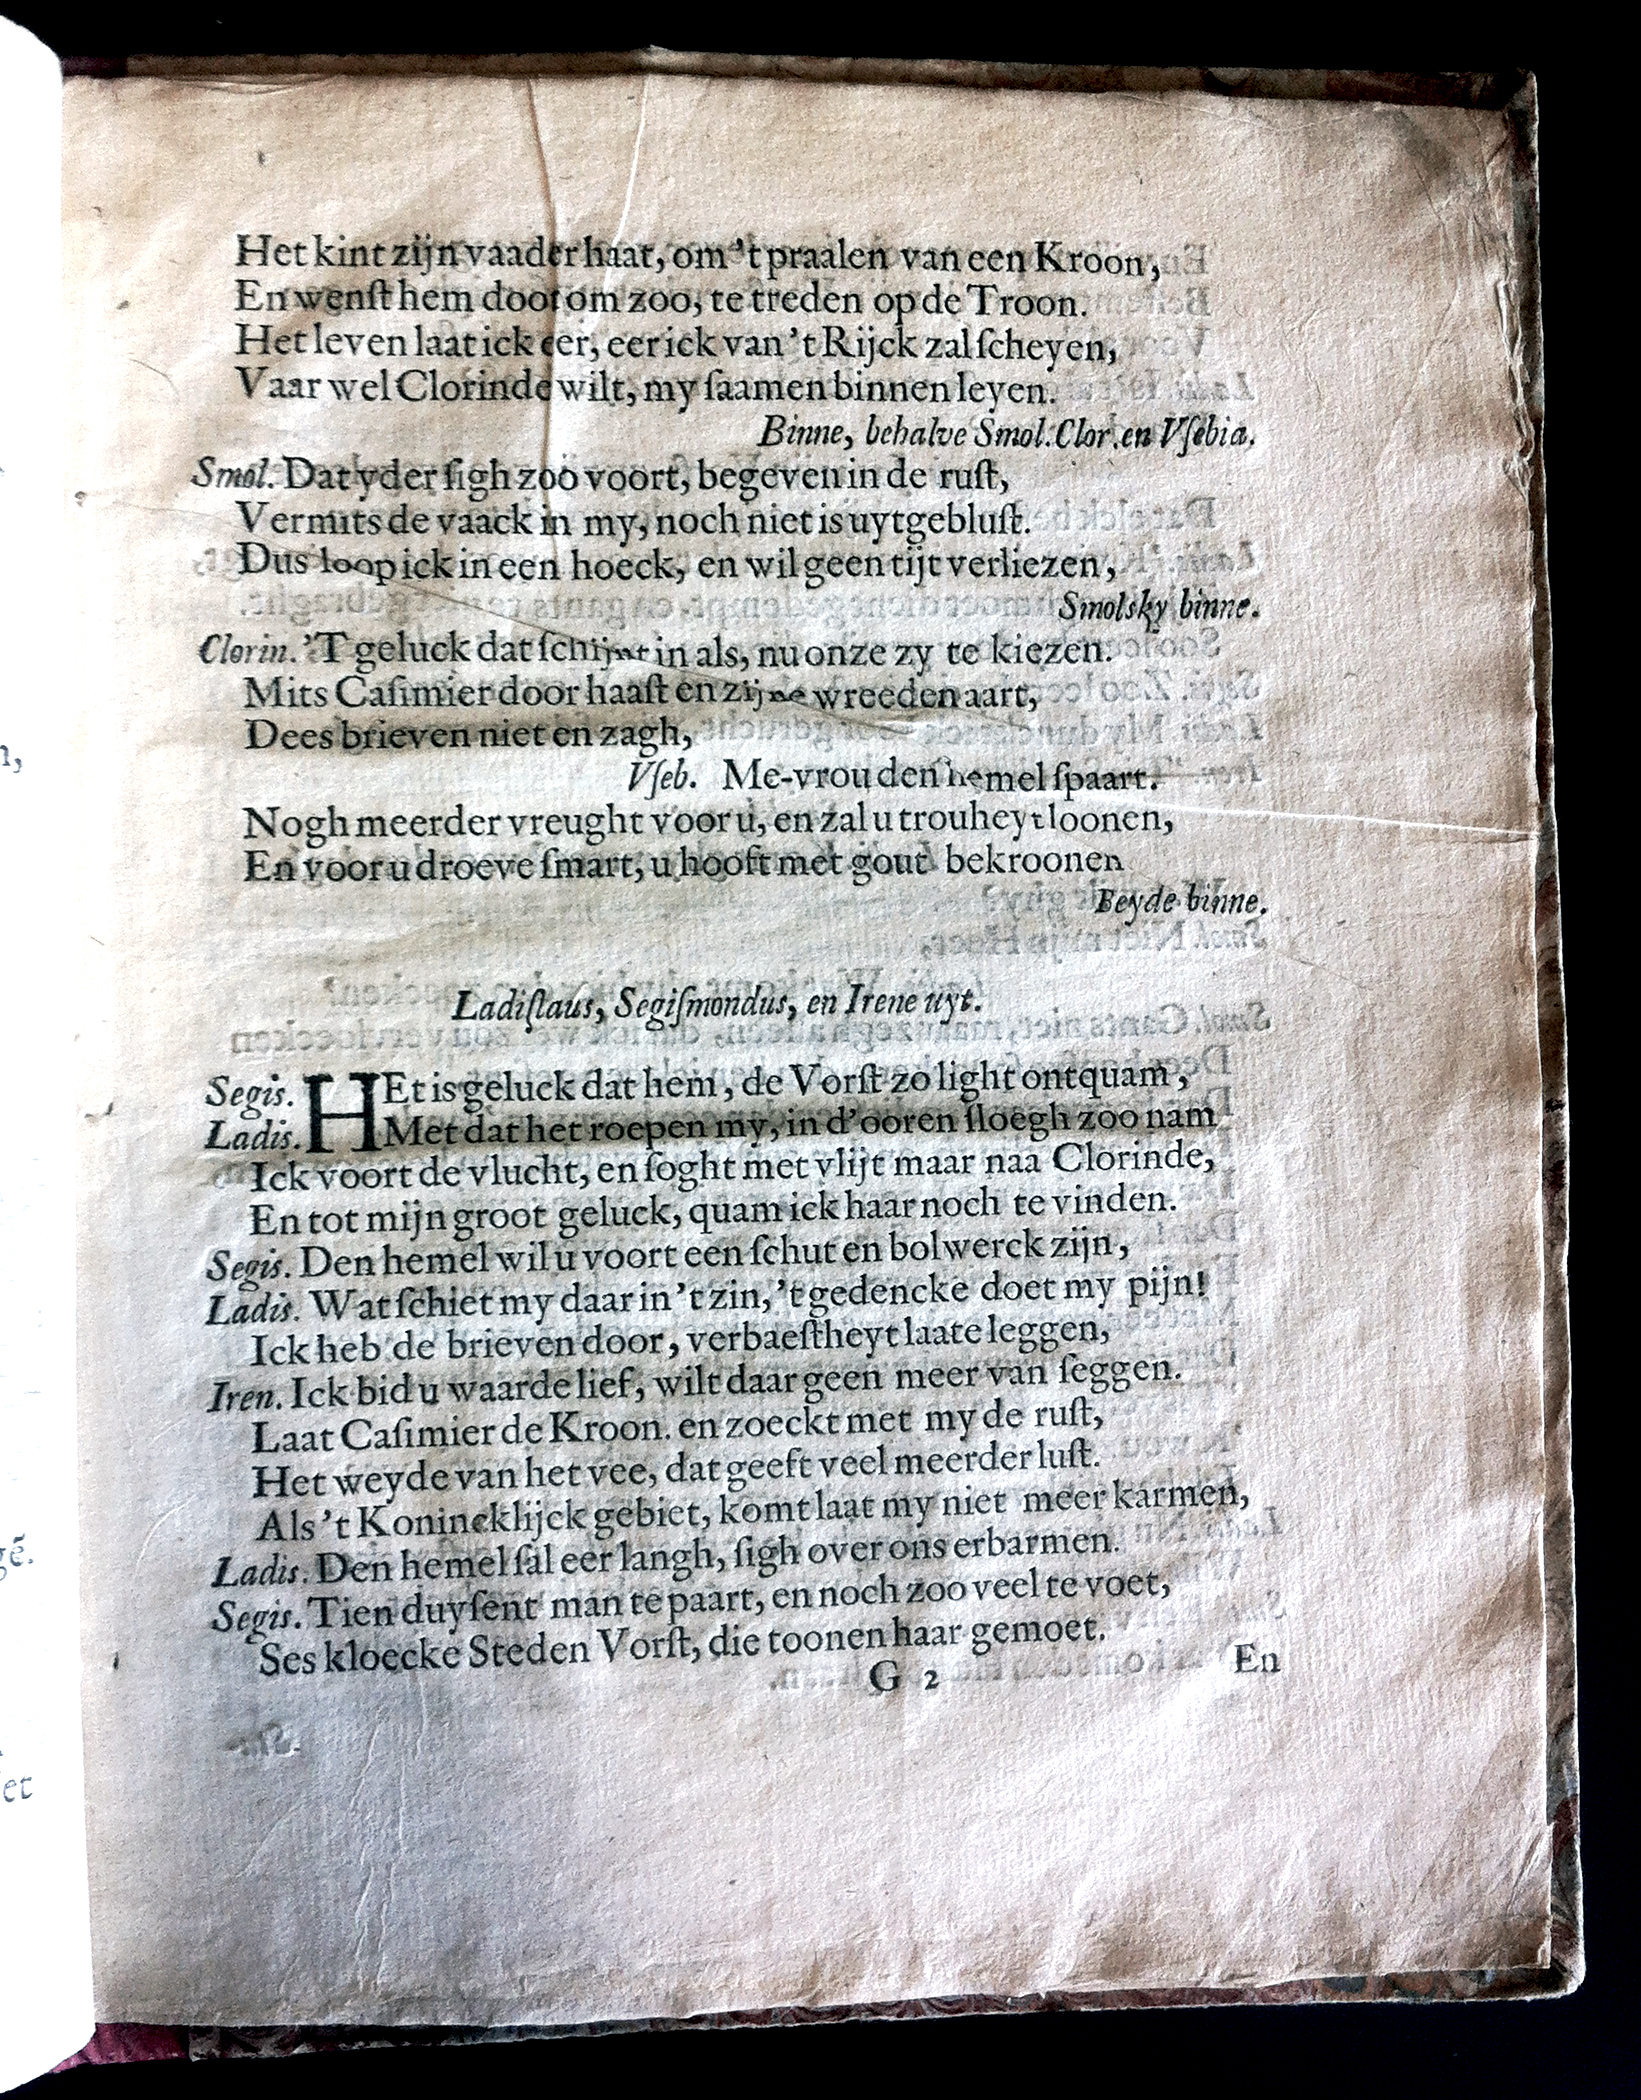 Het kint zijn vaader haat, om 't praalen van een Kroon,
En wenſt hem doot om zoo, te treden op de Troon.
Het leven laat ick eer, eer ick van 't Rijck zal ſcheyen,
Vaar wel Clorinde wilt, my ſaamen binnen leyen.
Binne, behalve Smol. Clor. en Vſebia.
Smol. Dat yder ſigh zoo voort, begeven in de ruſt,
Vermits de vaack in my, noch niet is uytgebluſt.
Dus loop ick in een hoeck, en wil geen tijt verliezen,
Smolsky binne.
Clorin. 'T geluck dat ſchijnt in als, nu onze zy te kiezen.
Mits Caſimier door haaſt en zijne wreeden aart,
Dees brieven niet en zagh,
Vſeb. Me-vrou den hemel ſpaart.
Nogh meerder vreught voor u, en zal u trouheyt loonen,
En voor u droeve ſmart, u hooft met gout bekroonen
Beyde binne.
Ladiſlaus, Segiſmondus, en Irene uyt.
Segis. HEt is geluck dat hem, de Vorſt zo light ontquam,
Ladis. Met dat het roepen my, in d'ooren ſloegh zoo nam
Ick voort de vlucht, en ſoght met vlijt maar naa Clorinde,
En tot mijn groot geluck, quam ick haar noch te vinden.
Segis. Den hemel wil u voort een ſchut en bolwerck zijn,
Ladis. Wat ſchiet my daar in 't zin, 't gedencke doet my pijn!
Ick heb de brieven door, verbaeſtheyt laate leggen,
Iren. Ick bid u waarde lief, wilt daar geen meer van ſeggen.
Laat Caſimier de Kroon. en zoeckt met my de ruſt,
Het weyde van het vee, dat geeft veel meerder luſt.
Als 't Konincklijck gebiet, komt laat my niet meer karmen,
Ladis. Den hemel ſal eer langh, ſigh over ons erbarmen.
Segis. Tien duyſent man te paart, en noch zoo veel te voet,
Ses kloecke Steden Vorſt, die toonen haar gemoet.
G 2 En